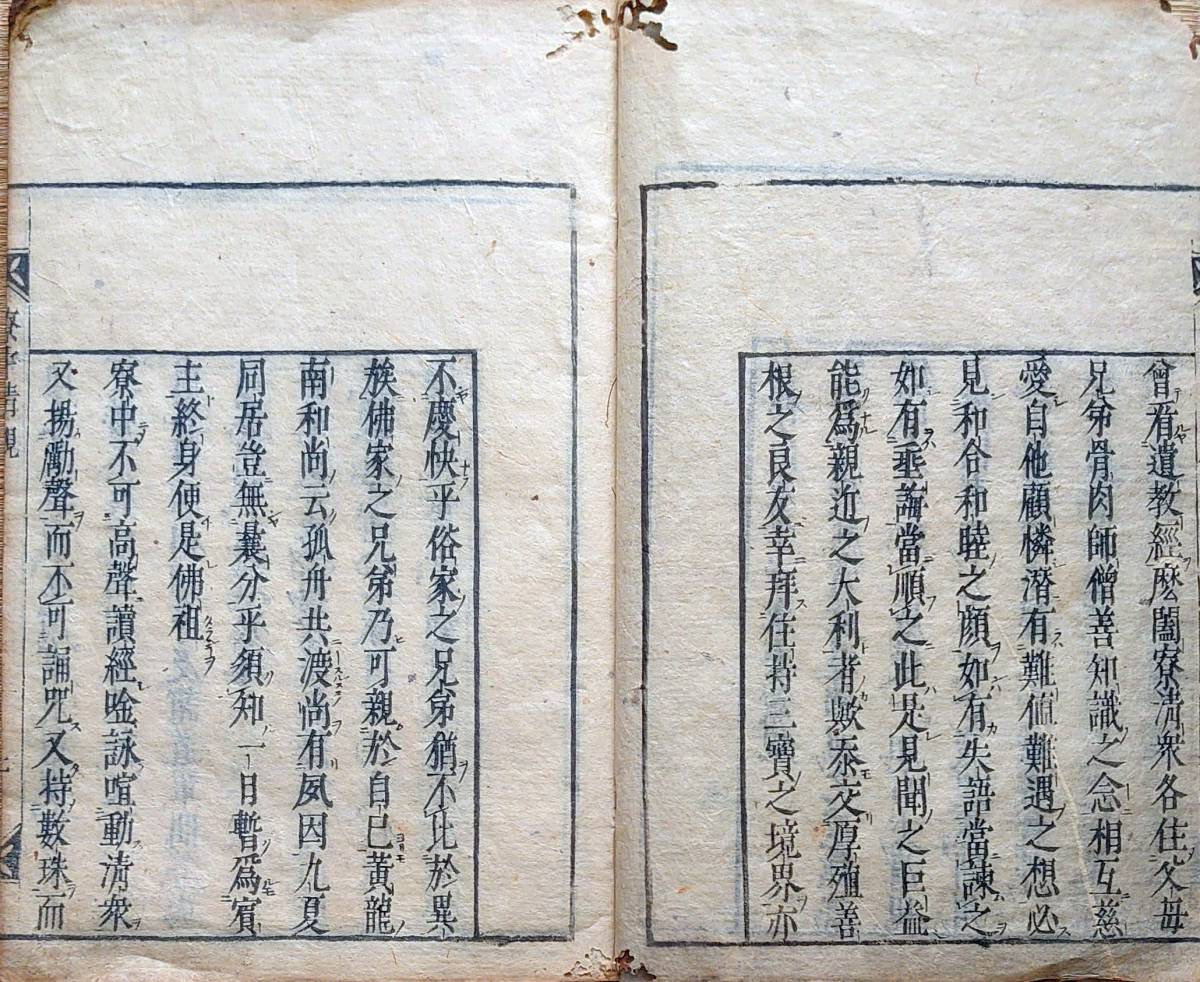 會有遺教經麽闔寮清衆各住父母
兄弟骨肉師僧善知識之念相互慈
愛自他顧憐潛有難値難遇之想必
見和合和睦之顔如有失語當諫之
如有垂誨當順之此是見聞之巨益
能爲親近之大利者歟忝交厚殖善
根之良友幸拜住持三寶之境界亦
不慶快乎俗家之兄弟猶不比於異
族佛家之兄弟乃可親於自己黄龍
南和尚云孤舟共渡尚有夙因九夏
同居豈無曩分乎須知一日暫爲賓
主終身便是佛祖
寮中不可高聲讀經唫詠喧動清衆
又揚勵聲而不可誦呪又持數珠而
寮中清規